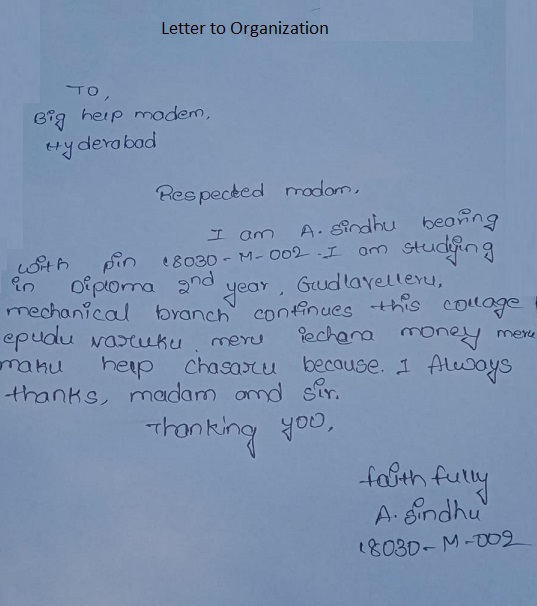 Letter to Organization
To,
Big help madem,
Hyderabad
Respected madam,
I am A. Sindhu bearing
with pin 18030-M-002. I am studying
in Diploma 2nd year, Gudlavelleru,
mechanical branch continues this collage
epudu varuku meru iechara money meru
maku help chasaru because. I Always
thanks, madam amd sir.
Thanking yoo,
faith fully
A. Sindhu
18030-M-002